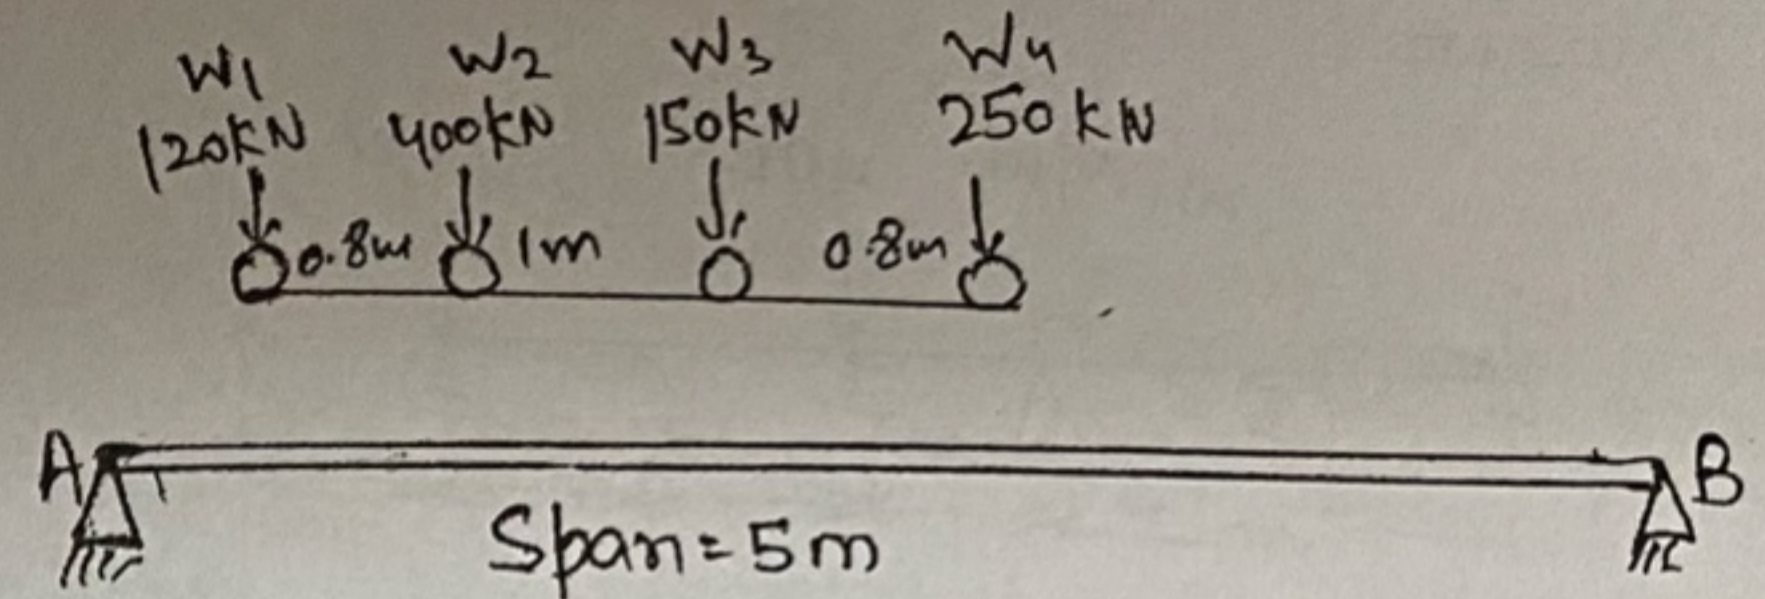 W1 W2 W3 W4
120KN 400KN 150KN 250KN
0.8m 1m 0.8m
A B
Span=5m